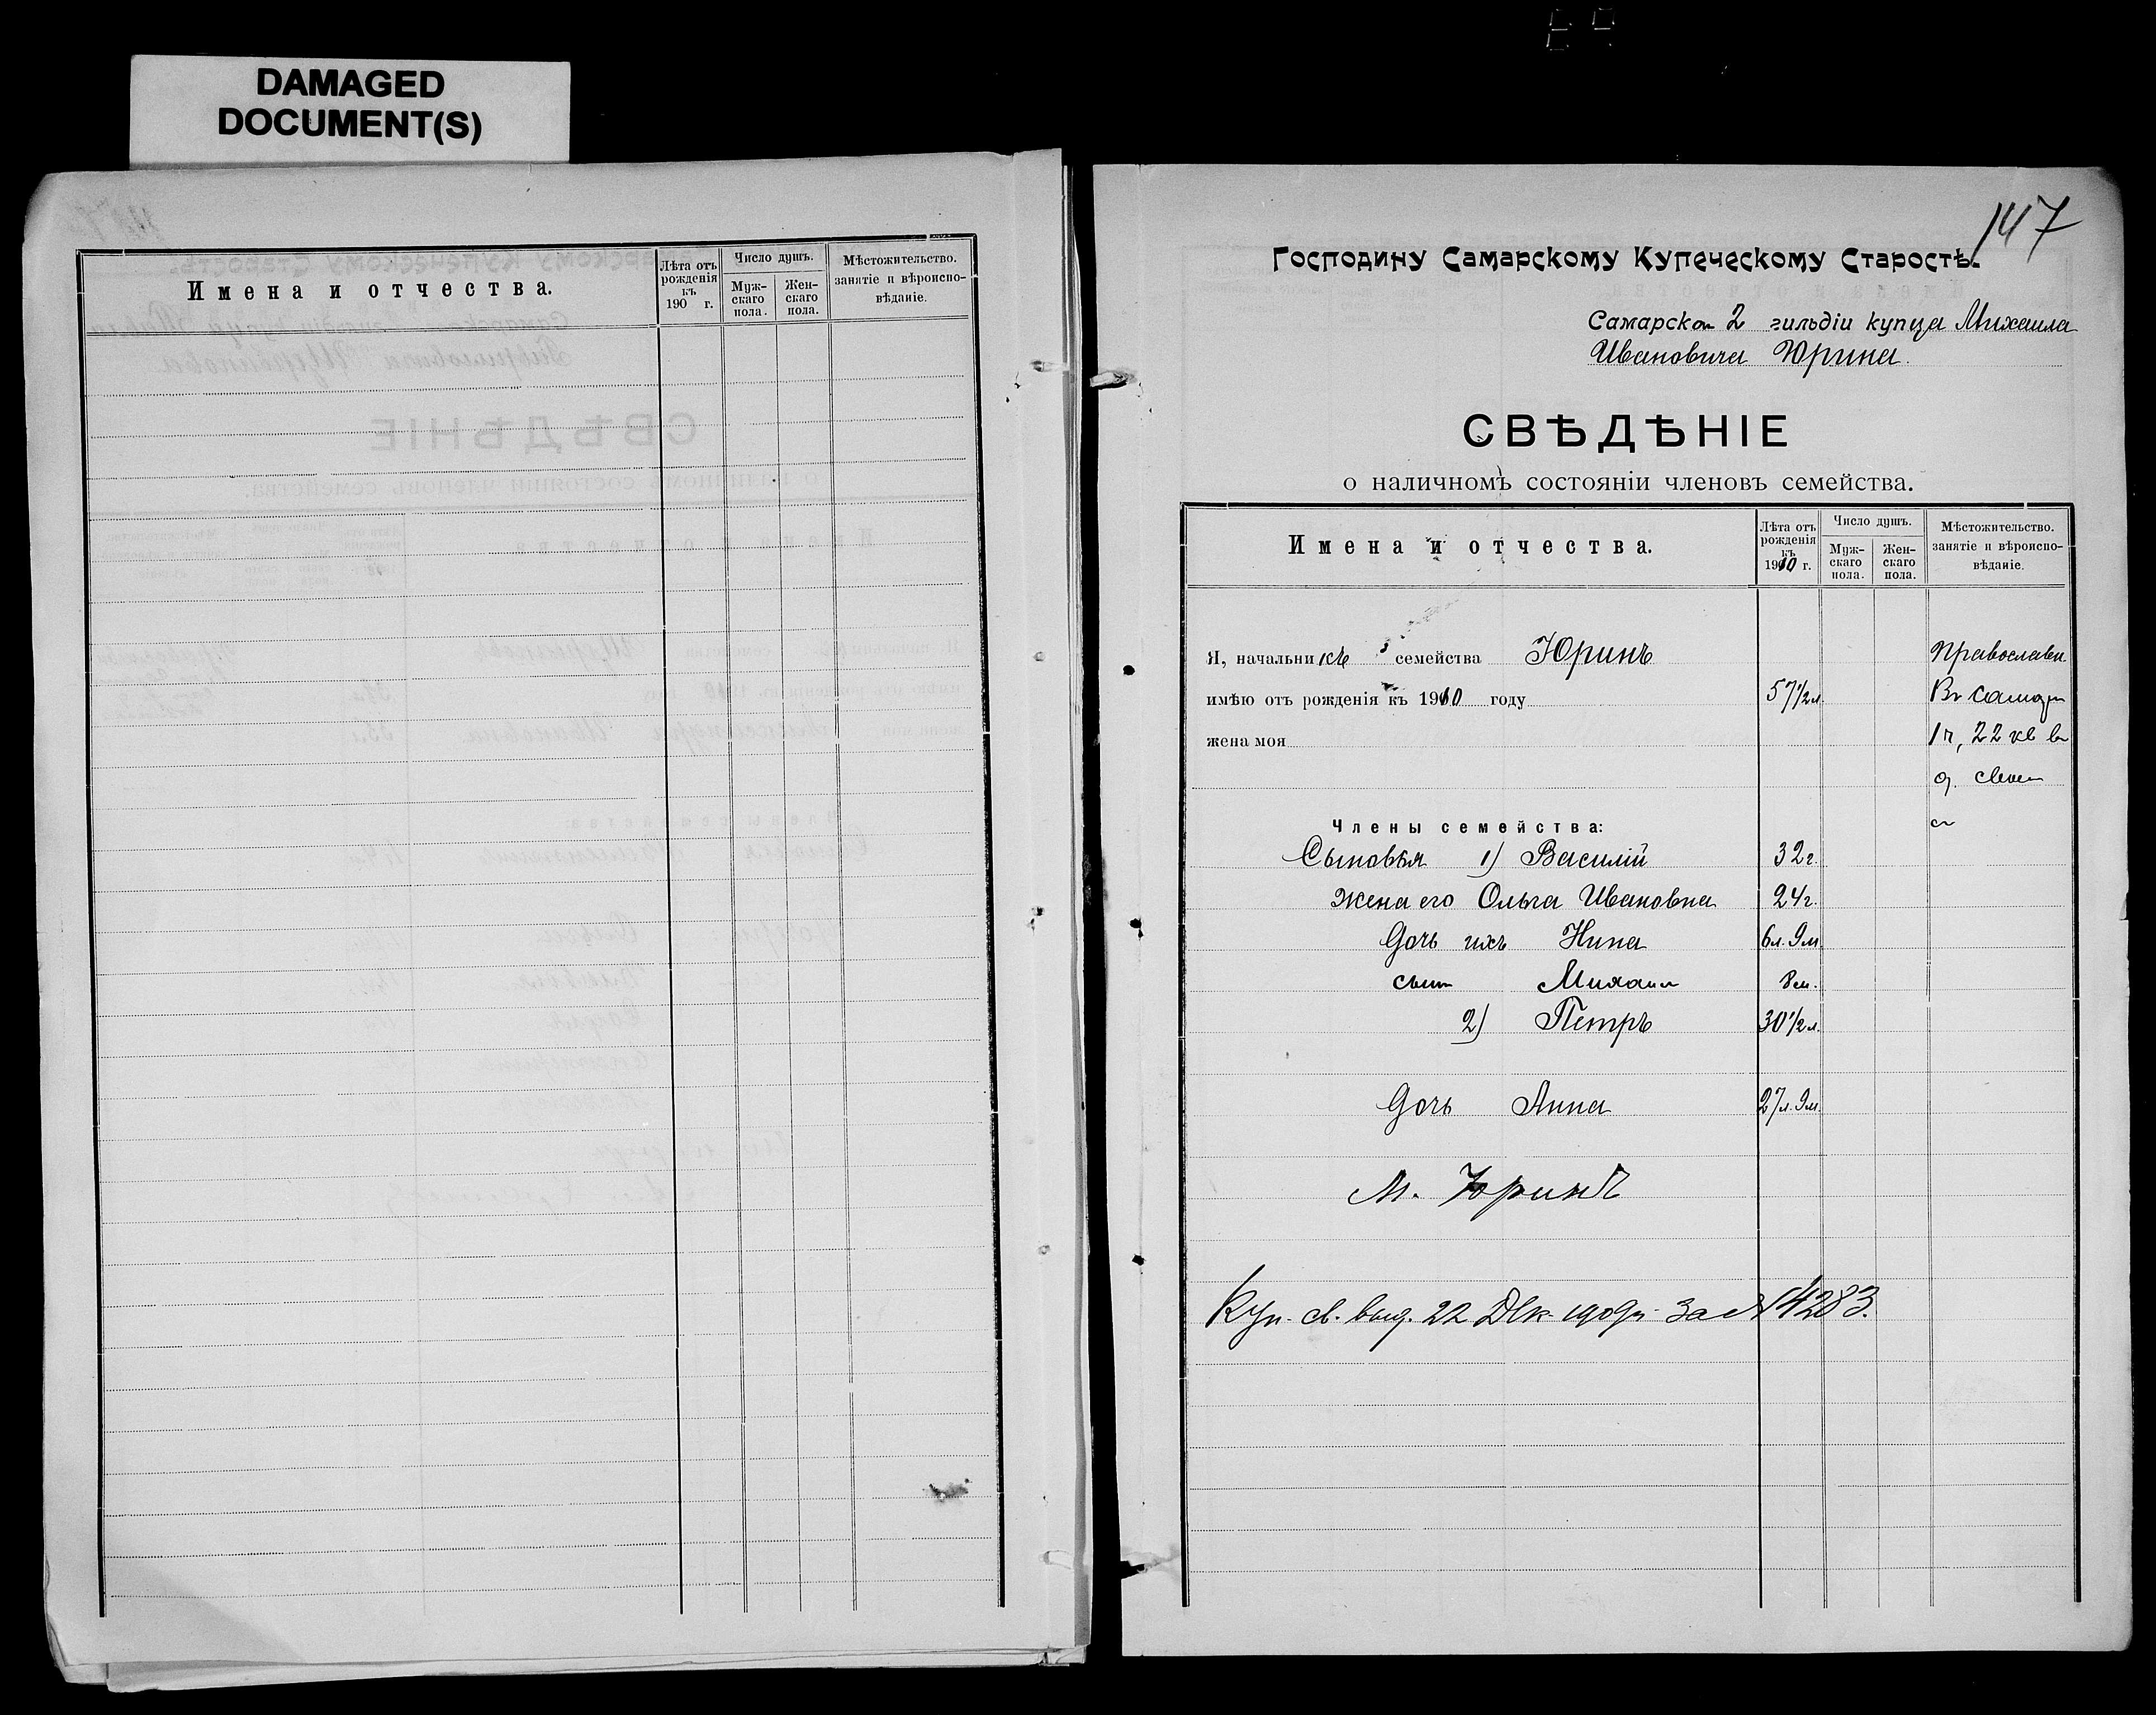 DAMAGED
DOCUMENT(S)
Имена и отчества.
Лѣта отъ рожденія къ 190 г.
Число душъ.
Муж-скаго пола.
Жен-скаго пола.
Мѣстожительство. занятіе и вѣроиспо-вѣданіе.
147
Господину Самарскому Купеческому Старостѣ.
Самарско 2 гильдіи купца Михаила
Ивановича Юрина.
СВѢДѢНІЕ
о наличномъ состояніи членовъ семейства.
Имена и отчества.
Лѣта отъ рожденія къ 1910 г.
Число душъ.
Муж-скаго пола.
Жен-скаго пола.
Мѣстожительство. занятіе и вѣроиспо-вѣданіе.
Я, начальникъ семейства Юринъ Православн
имѣю отъ рожденія къ 1910 году 57 1/2 л. Въ Самар
жена моя 1 ч, 22 кв въ
д. своем
Члены семейства:
Сыновья 1) Василій 32 г.
Жена его Ольга Ивановна 24 г.
Дочь ихъ Нина 6 л. 9 м
сын Михаил 8 м.
2) Петръ 30 1/2 л.
Дочь Анна 27 л. 9 м.
М. Юринъ
Куп. св. выд. 22 Дек 1909 г. за № 4283.